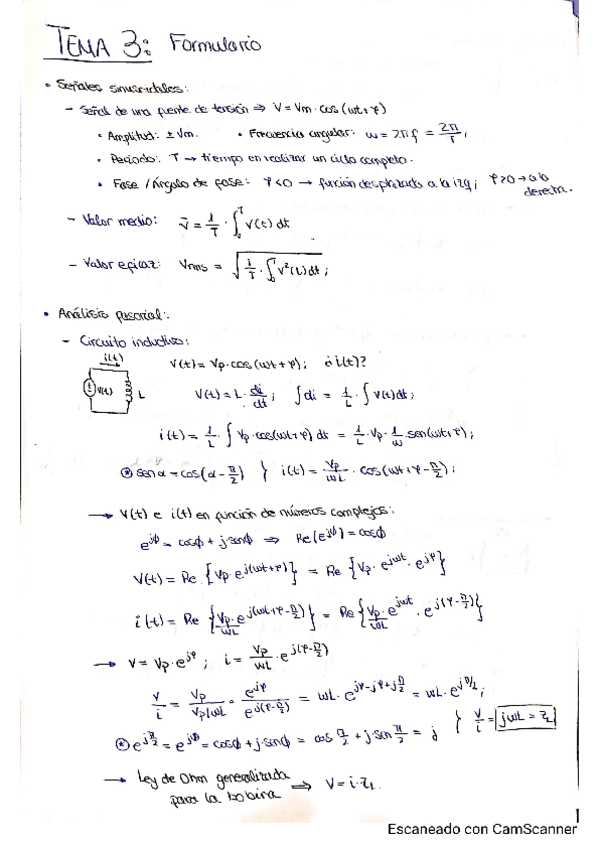 TEMA 3: Formulario
• Señales sinusoidales:
– Señal de una fuente de tensión ⇒ V = Vm · cos (ωt + φ)
• Amplitud: ± Vm. • Frecuencia angular: ω = 2πf = 2π/T ;
• Periodo: T → tiempo en realizar un ciclo completo.
• Fase / Ángulo de fase: φ<0 → función desplazada a la izq ; φ>0 → a la derecha.
– Valor medio: v̄ = 1/T · ∫₀ᵀ V(t) dt
– Valor eficaz: Vrms = √(1/T · ∫₀ᵀ v²(t) dt) ;
• Análisis fasorial:
– Circuito inductivo:
i(t)
V(t)
L
V(t) = Vp · cos (ωt + φ) ; ¿i(t)?
V(t) = L · di/dt ; ∫di = 1/L · ∫ V(t) dt ;
i(t) = 1/L · ∫ Vp · cos(ωt + φ) dt = 1/L · Vp · 1/ω · sen(ωt + φ) ;
⊛ sen α = cos(α – π/2) } i(t) = Vp/ωL · cos (ωt + φ – π/2) ;
→ V(t) e i(t) en función de números complejos:
e^jϕ = cosϕ + j·senϕ ⇒ Re(e^jϕ) = cosϕ
V(t) = Re {Vp · e^j(ωt+φ)} = Re {Vp · e^jωt · e^jφ}
i(t) = Re {Vp/ωL · e^j(ωt+φ–π/2)} = Re {Vp/ωL · e^jωt · e^j(φ–π/2)}
→ V = Vp · e^jφ ; i = Vp/ωL · e^j(φ–π/2)
V/i = Vp/(Vp/ωL) · e^jφ/e^j(φ–π/2) = ωL · e^jφ–jφ+jπ/2 = ωL · e^jπ/2 ;
⊛ e^jπ/2 = e^jϕ = cosϕ + j·senϕ = cos π/2 + j·sen π/2 = j } V/i = jωL = ZL
→ Ley de Ohm generalizada
para la bobina ⇒ V = i · ZL
Escaneado con CamScanner